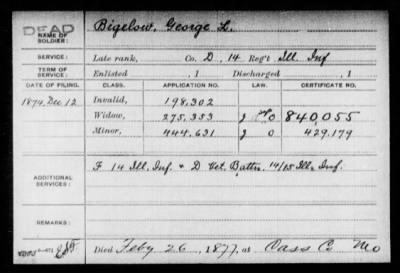 DEAD
NAME OF SOLDIER: Bigelow, George L.
SERVICE: Late rank, Co. D, 14 Reg't Ill. Inf
TERM OF SERVICE: Enlisted , 1 Discharged , 1
DATE OF FILING. CLASS. APPLICATION NO. LAW. CERTIFICATE NO.
1874, Dec 12 Invalid, 198.302
Widow, 275,353 J 0 840,055
Minor, 444.631 J 0 429.179
ADDITIONAL SERVICES: F 14 Ill. Inf. + D Vet. Battn. 14/15 Ill. Inf.
REMARKS:
Died Feby 26, 1877, at Cass Co Mo